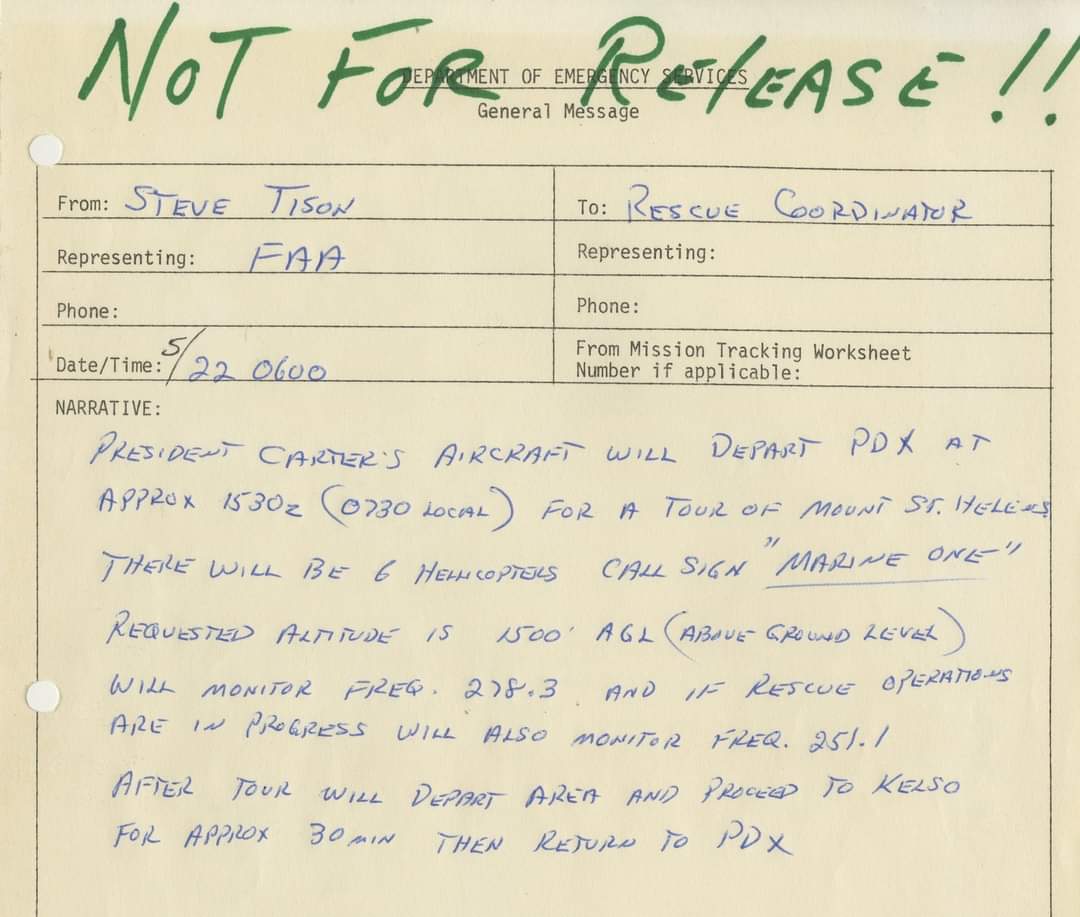 NOT FOR RELEASE !!
DEPARTMENT OF EMERGENCY SERVICES
General Message
From: STEVE TISON
To: RESCUE COORDINATOR
Representing: FAA
Representing:
Phone:
Phone:
Date/Time: 5/22 0600
From Mission Tracking Worksheet
Number if applicable:
NARRATIVE:
PRESIDENT CARTER'S AIRCRAFT WILL DEPART PDX AT
APPROX 1530z (0730 LOCAL) FOR A TOUR OF MOUNT ST. HELENS
THERE WILL BE 6 HELICOPTERS CALL SIGN "MARINE ONE"
REQUESTED ALTITUDE IS 1500' AGL (ABOVE GROUND LEVEL)
WILL MONITOR FREQ. 278.3 AND IF RESCUE OPERATIONS
ARE IN PROGRESS WILL ALSO MONITOR FREQ. 251.1
AFTER TOUR WILL DEPART AREA AND PROCEED TO KELSO
FOR APPROX 30 MIN THEN RETURN TO PDX